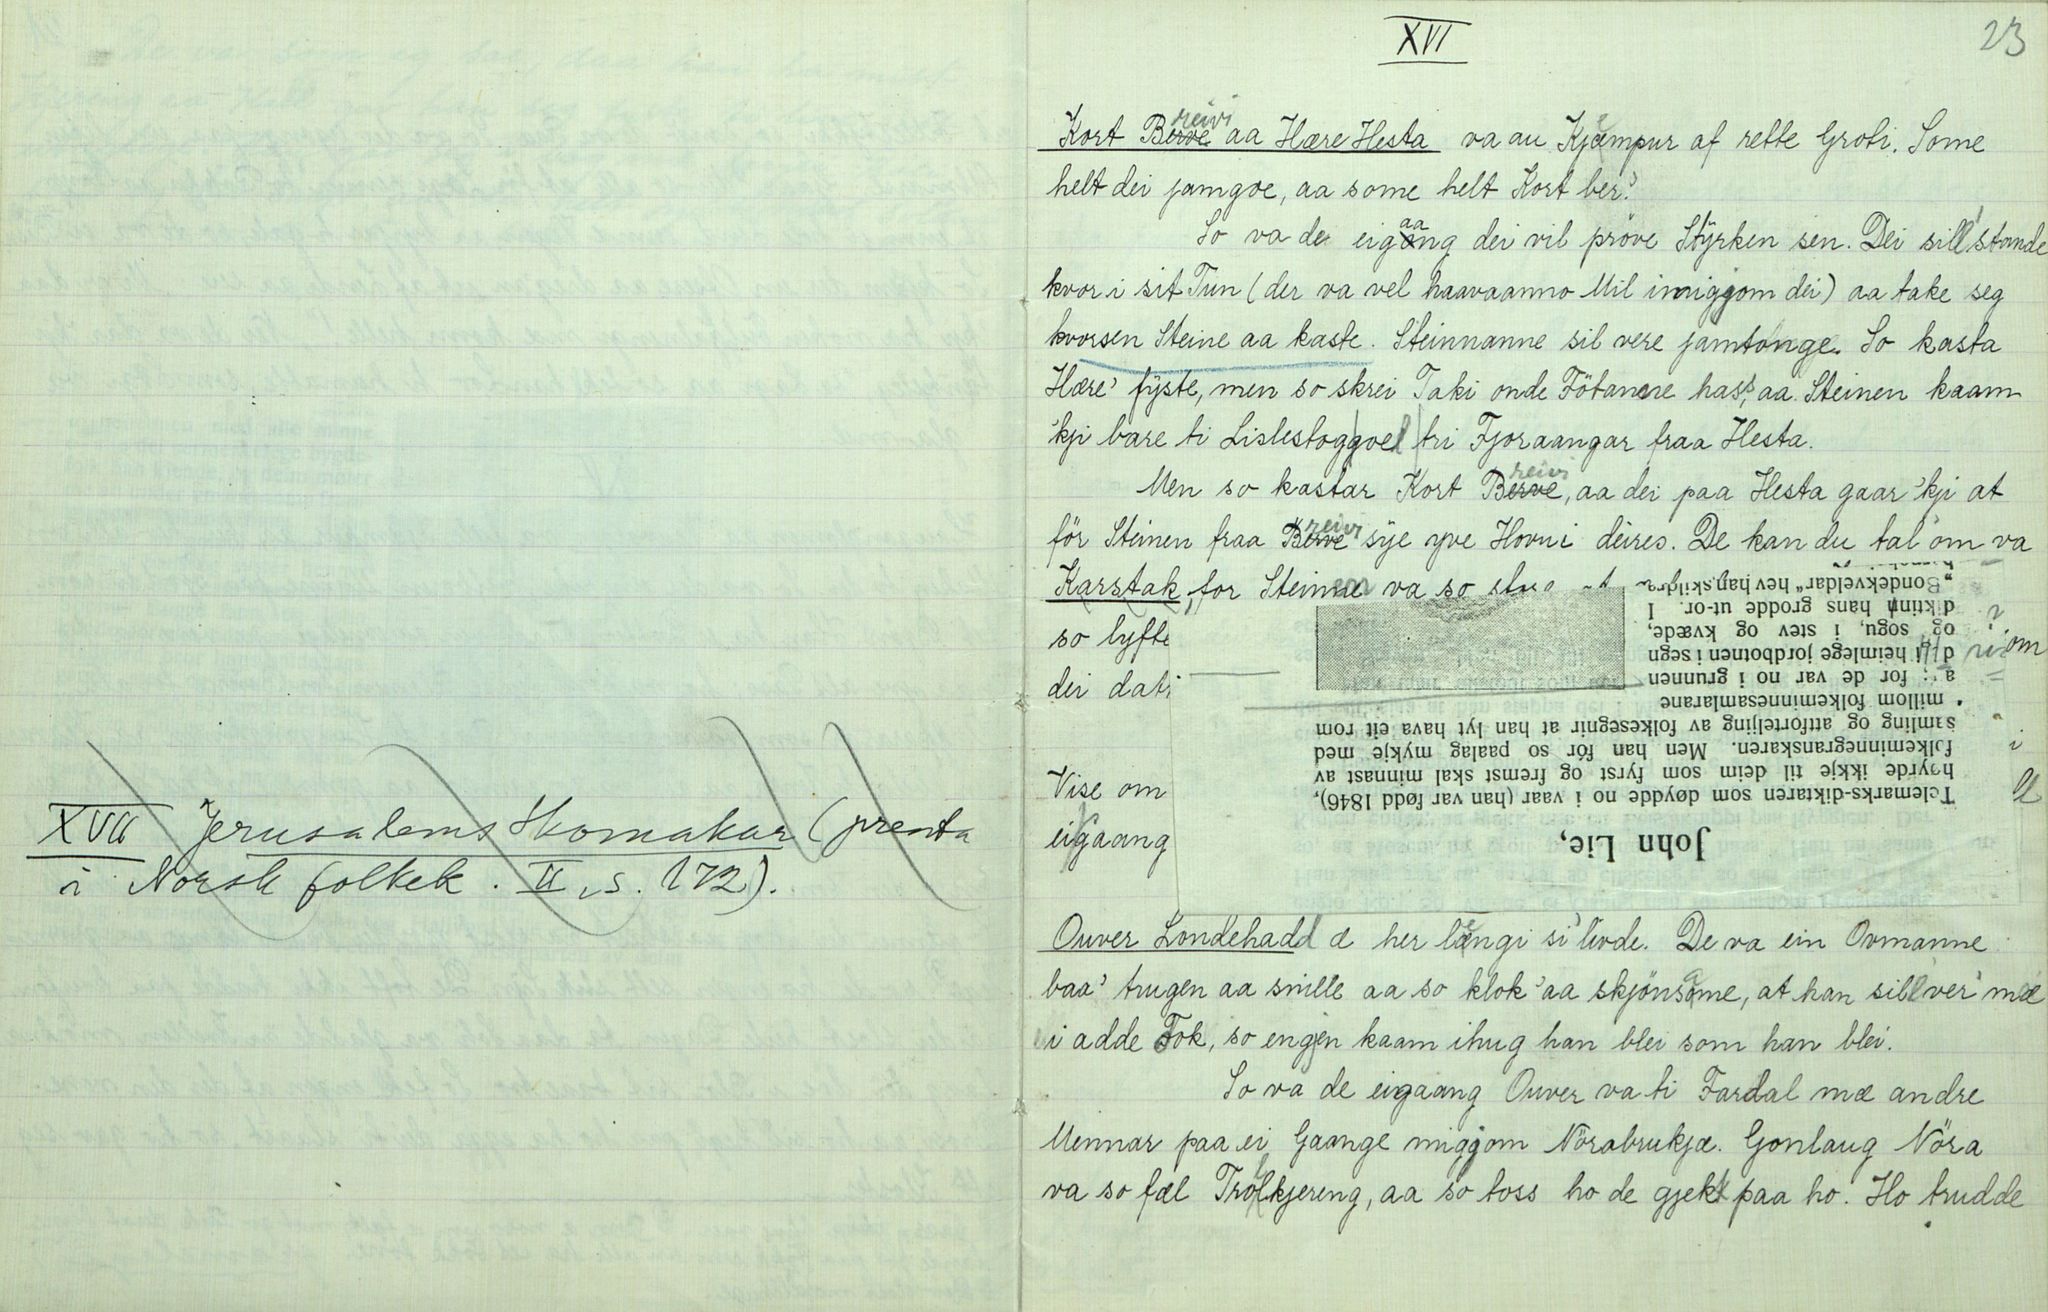 XVII Jerusalems Skomakar (prenta
i Norsk folkek. II, s. 172).
XVI
23
Kort Berve reivi aa Hære Hesta va au Kjæmpur af rette Groti. Some
helt dei jamgoe, aa some helt Kort ber'.
So va de eigang aa dei vil prøve Styrken sen. Dei sill' stande
kvor i sit Tun (der va vel haavaanno Mil imiggjom dei) aa take seg
kvorsen Steine aa kaste. Steinnanne sil vere jamtonge. So kasta
Hære' fyste, men so skrei Taki onde Fötanne hass, aa Steinen kaam
'kji bare ti Lislestoggoel tri Fjoraangar fraa Hesta.
Men so kastar Kort Berve reivi, aa dei paa Hesta gaar 'kji at
för Steinen fraa Berve reivi sye yve Hovui deires. De kan du tal' om va
Karstak, for Steinen va so
so lyfte
om
dei dati
Vise om
eigaang
"Bondekveldar" hev han skildra
diktinn hans grodde ut-or. I
og sogu, i stev og kvæde,
di heimlege jordbotnen i segn
for de var no i grunnen
millom folkeminnesamlarane
samling og attforteljing av folkesegnir at han lyt hava eit rom
folkeminnegranskaren. Men han fór so paalag mykje med
høyrde ikkje til deim som fyrst og fremst skal minnast av
Telemarks-diktaren som døydde no i vaar (han var fødd 1846),
John Lie,
Ouver Londehadd æ her længi si' livde. De va ein Ovmanne
baa' trugen aa snille aa so klok' aa skjönsame, at han sill ver' mæ
i adde Tok, so engjen kaam ihug han blei som han blei.
So va de eigaang Ouver va ti Fardal mæ andre
Mennar paa ei Gaange miggjom Nörabrukjæ. Gonlaug Nöra
va so fæl Trollkjereng, aa so toss ho de gjekk paa ho. Ho trudde